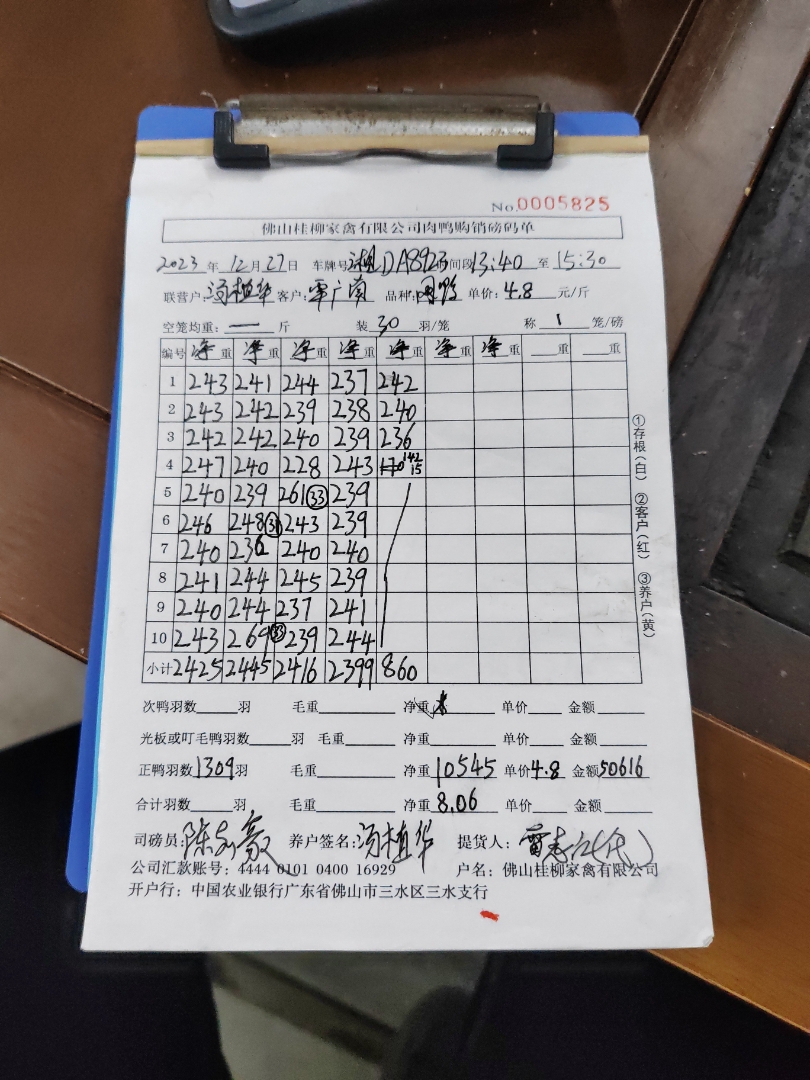 No.0005825
佛山桂柳家禽有限公司肉鸭购销磅码单
2023 年 12 月 27 日 车牌号 湘DA8923 时间段 13:40 至 15:30
联营户: 汤植华 客户: 品种: 单价: 4.8 元/斤
空笼均重: — 斤 装 30 羽/笼 称 1 笼/磅
编号 净重 净重 净重 净重 净重 净重 净重 重 重
1 243 241 244 237 242
2 243 242 239 238 240
3 242 242 240 239 236
4 247 240 228 243 142 15
5 240 239 261 33 239
6 246 248 31 243 239
7 240 236 240 240
8 241 244 245 239
9 240 244 237 241
10 243 269 33 239 244
小计 2425 2445 2416 2399 860
①存根(白) ②客户(红) ③养户(黄)
次鸭羽数 羽 毛重 净重 单价 金额
光板或叮毛鸭羽数 羽 毛重 净重 单价 金额
正鸭羽数 1309 羽 毛重 净重 10545 单价 4.8 金额 50616
合计羽数 羽 毛重 净重 8.06 单价 金额
司磅员: 养户签名: 汤植华 提货人:
公司汇款账号: 4444 0101 0400 16929 户名: 佛山桂柳家禽有限公司
开户行: 中国农业银行广东省佛山市三水区三水支行